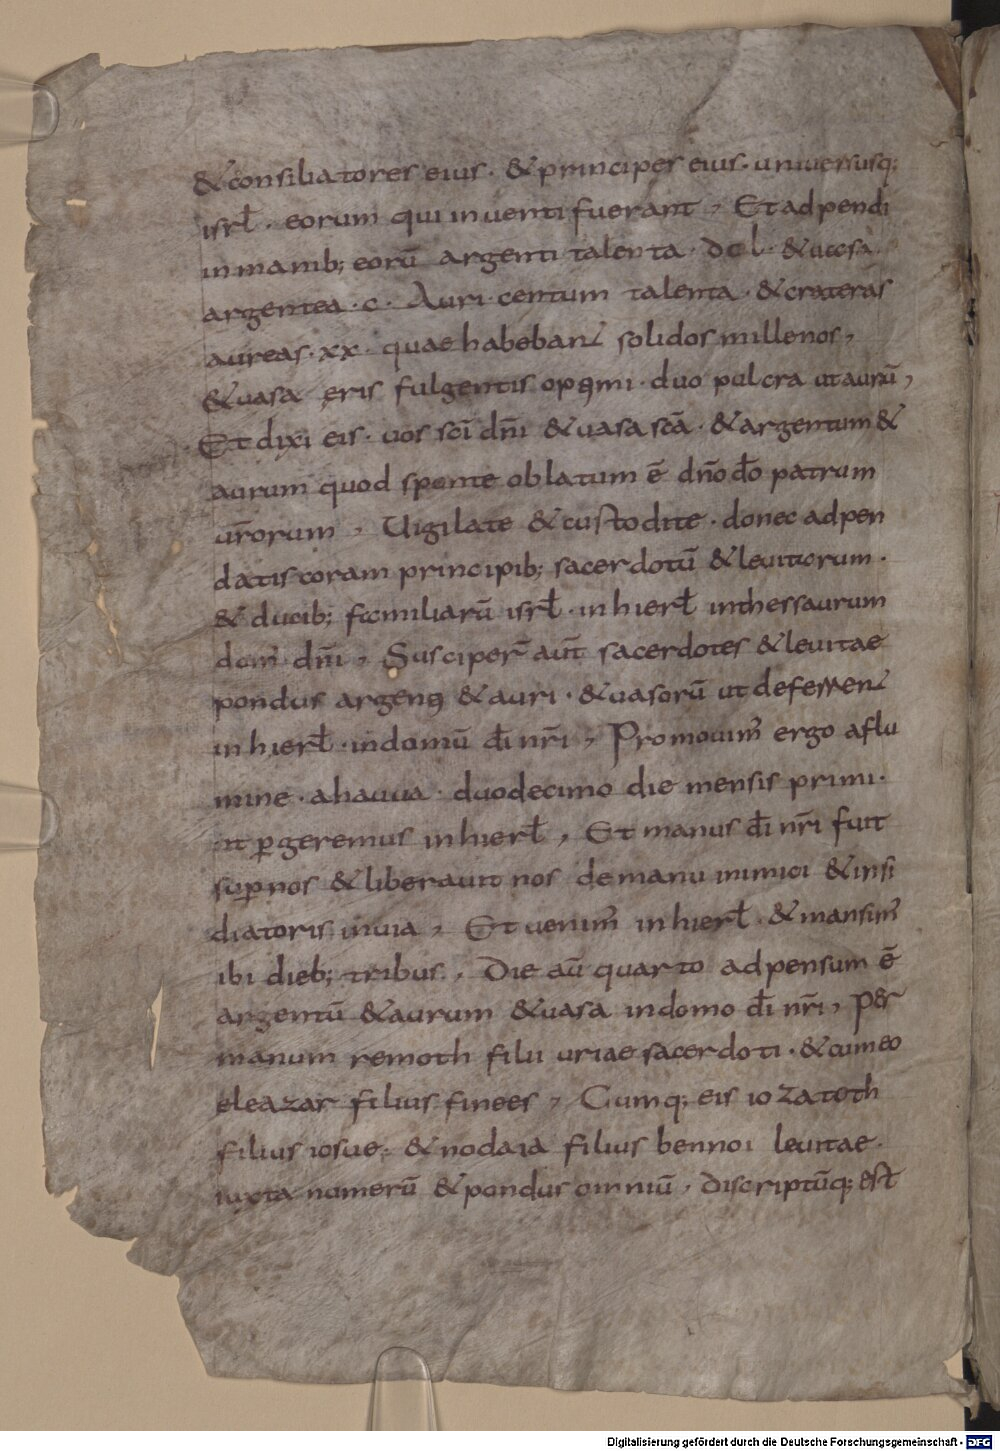 & consiliatores eius · & principes eius · uniuersusq;
isrł · eorum qui inuenti fuerant , Et adpendi
in manib; eorū argenti talenta · dcl · & uasa
argentea · c · Auri centum talenta · & crateras
aureas · xx · quae habebant solidos millenos ,
& uasa ęris fulgentis optimi · duo pulcra ut aurū ,
Et dixi eis · uos sc̄i dn̄i & uasa sc̄a · & argentum &
aurum quod sponte oblatum ē dn̄o d̄o patrum
ur̄orum , Uigilate & custodite · donec adpen
datis coram principib; sacerdotū & leuitorum ·
& ducib; familiarū isrł · in hierł in thessaurum
dom' dn̄i , Susceper̄ aūt sacerdotes & leuitae
pondus argenti & auri · & uasorū ut deferrent
in hierł · in domū d̄i nr̄i , Promouim' ergo a flu
mine · ahauua · duodecimo die mensis primi ·
ut ꝑgeremus in hierł , Et manus d̄i nr̄i fuit
suꝑ nos & liberauit nos de manu inimici & insi
diatoris in uia , Et uenim' in hierł · & mansim'
ibi dieb; tribus , Die aū quarto adpensum ē
argentū & aurum & uasa in domo d̄i nr̄i , Per
manum remoth filii uriae sacerdoti · & cum eo
eleazar filius finees , Cumq; eis iozatoth
filius iosue · & nodaia filius bennoi leuitae ·
iuxta numerū & pondus omniū , discriptūq; est
Digitalisierung gefördert durch die Deutsche Forschungsgemeinschaft - DFG